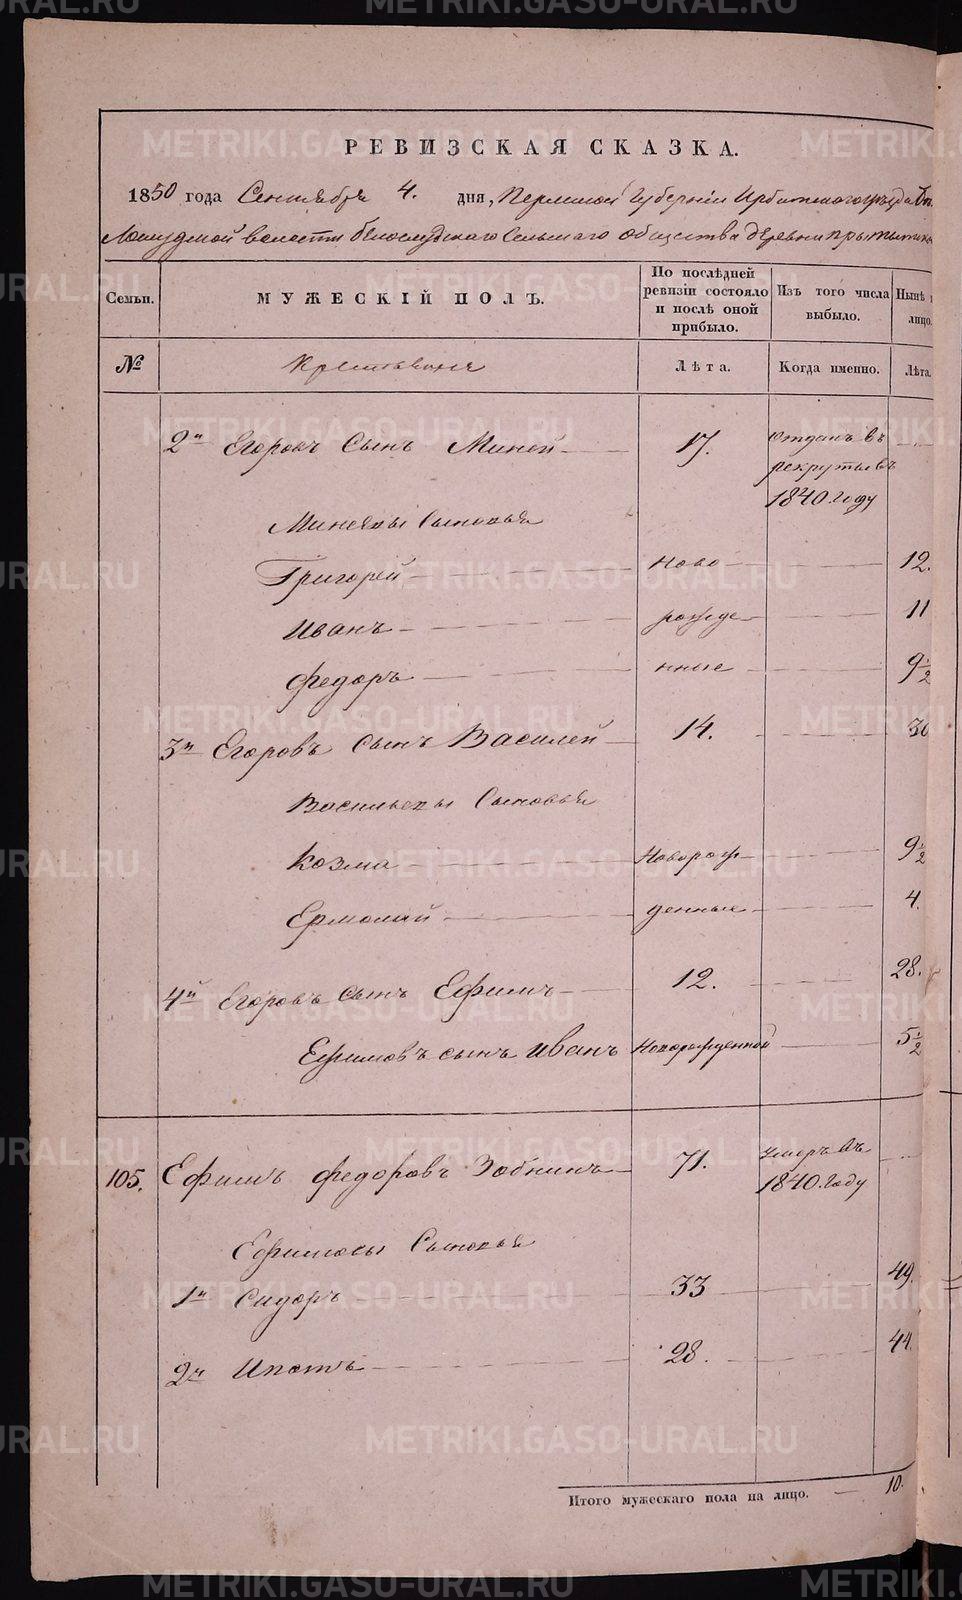 РЕВИЗСКАЯ СКАЗКА.
1850 года Сентября 4. дня, Пермской Губернии Ирбитского уезда
волости Белослудского Сельского Общества деревни
Семьи. МУЖЕСКІЙ ПОЛЪ. По послѣдней ревизіи состояло и послѣ оной прибыло. Изъ того числа выбыло. Нынѣ лицо.
№ Крестьяне Лѣта. Когда именно. Лѣта.
2й Егоровъ Сынъ Миней 17. отданъ въ
рекруты въ
1840 году
Минеевы Сыновья
Григорей Ново 12.
Иванъ рожде 11
Федоръ нные 9 1/2
3й Егоровъ сынъ Василей 14. 30
Васильевы Сыновья
Козма Наворож 9 1/2
Ермолай денные 4.
4й Егоровъ сынъ Ефимъ 12. 28.
Ефимовъ сынъ Иванъ Новорожденной 5 1/2
105. Ефимъ Федоровъ Зобнинъ 71. умеръ въ
1840 году
Ефимовы Сыновья
1й Сидоръ 33 49.
2й Ипатъ 28. 44.
Итого мужескаго пола на лицо. 10.
METRIKI.GASO-URAL.RU